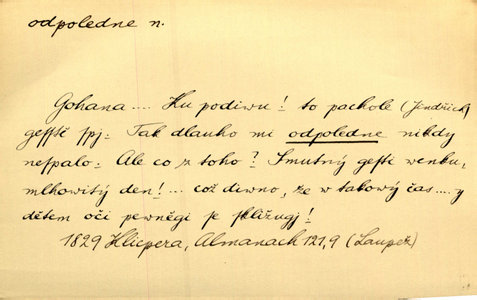 odpoledne n.
Gohana .... Ku podiwu! to pachole (Jindřich)
gesstě spj. Tak dlauho mi odpoledne nikdy
nespalo. Ale co z toho? Smutný gesti wenku,
mlhowitý den! ... což diwno, že w takowý čas .... y
dětem oči pewněgi se sklížugj!
1829 Klicpera, Almanach 121,9 (Laupež)